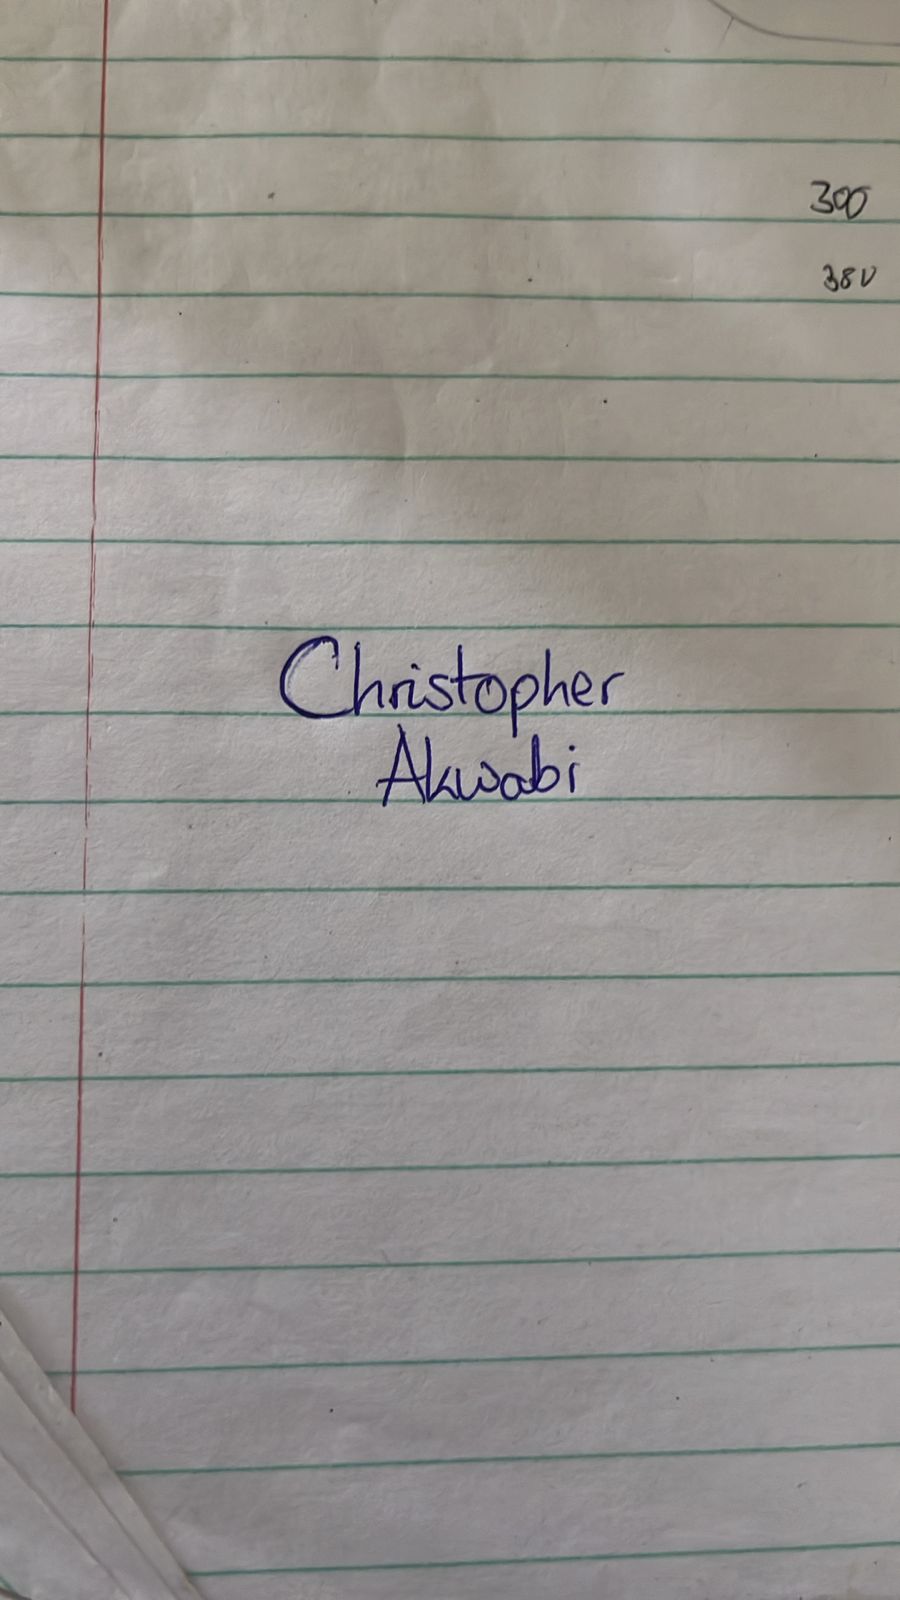 300
380
Christopher
Akwabi